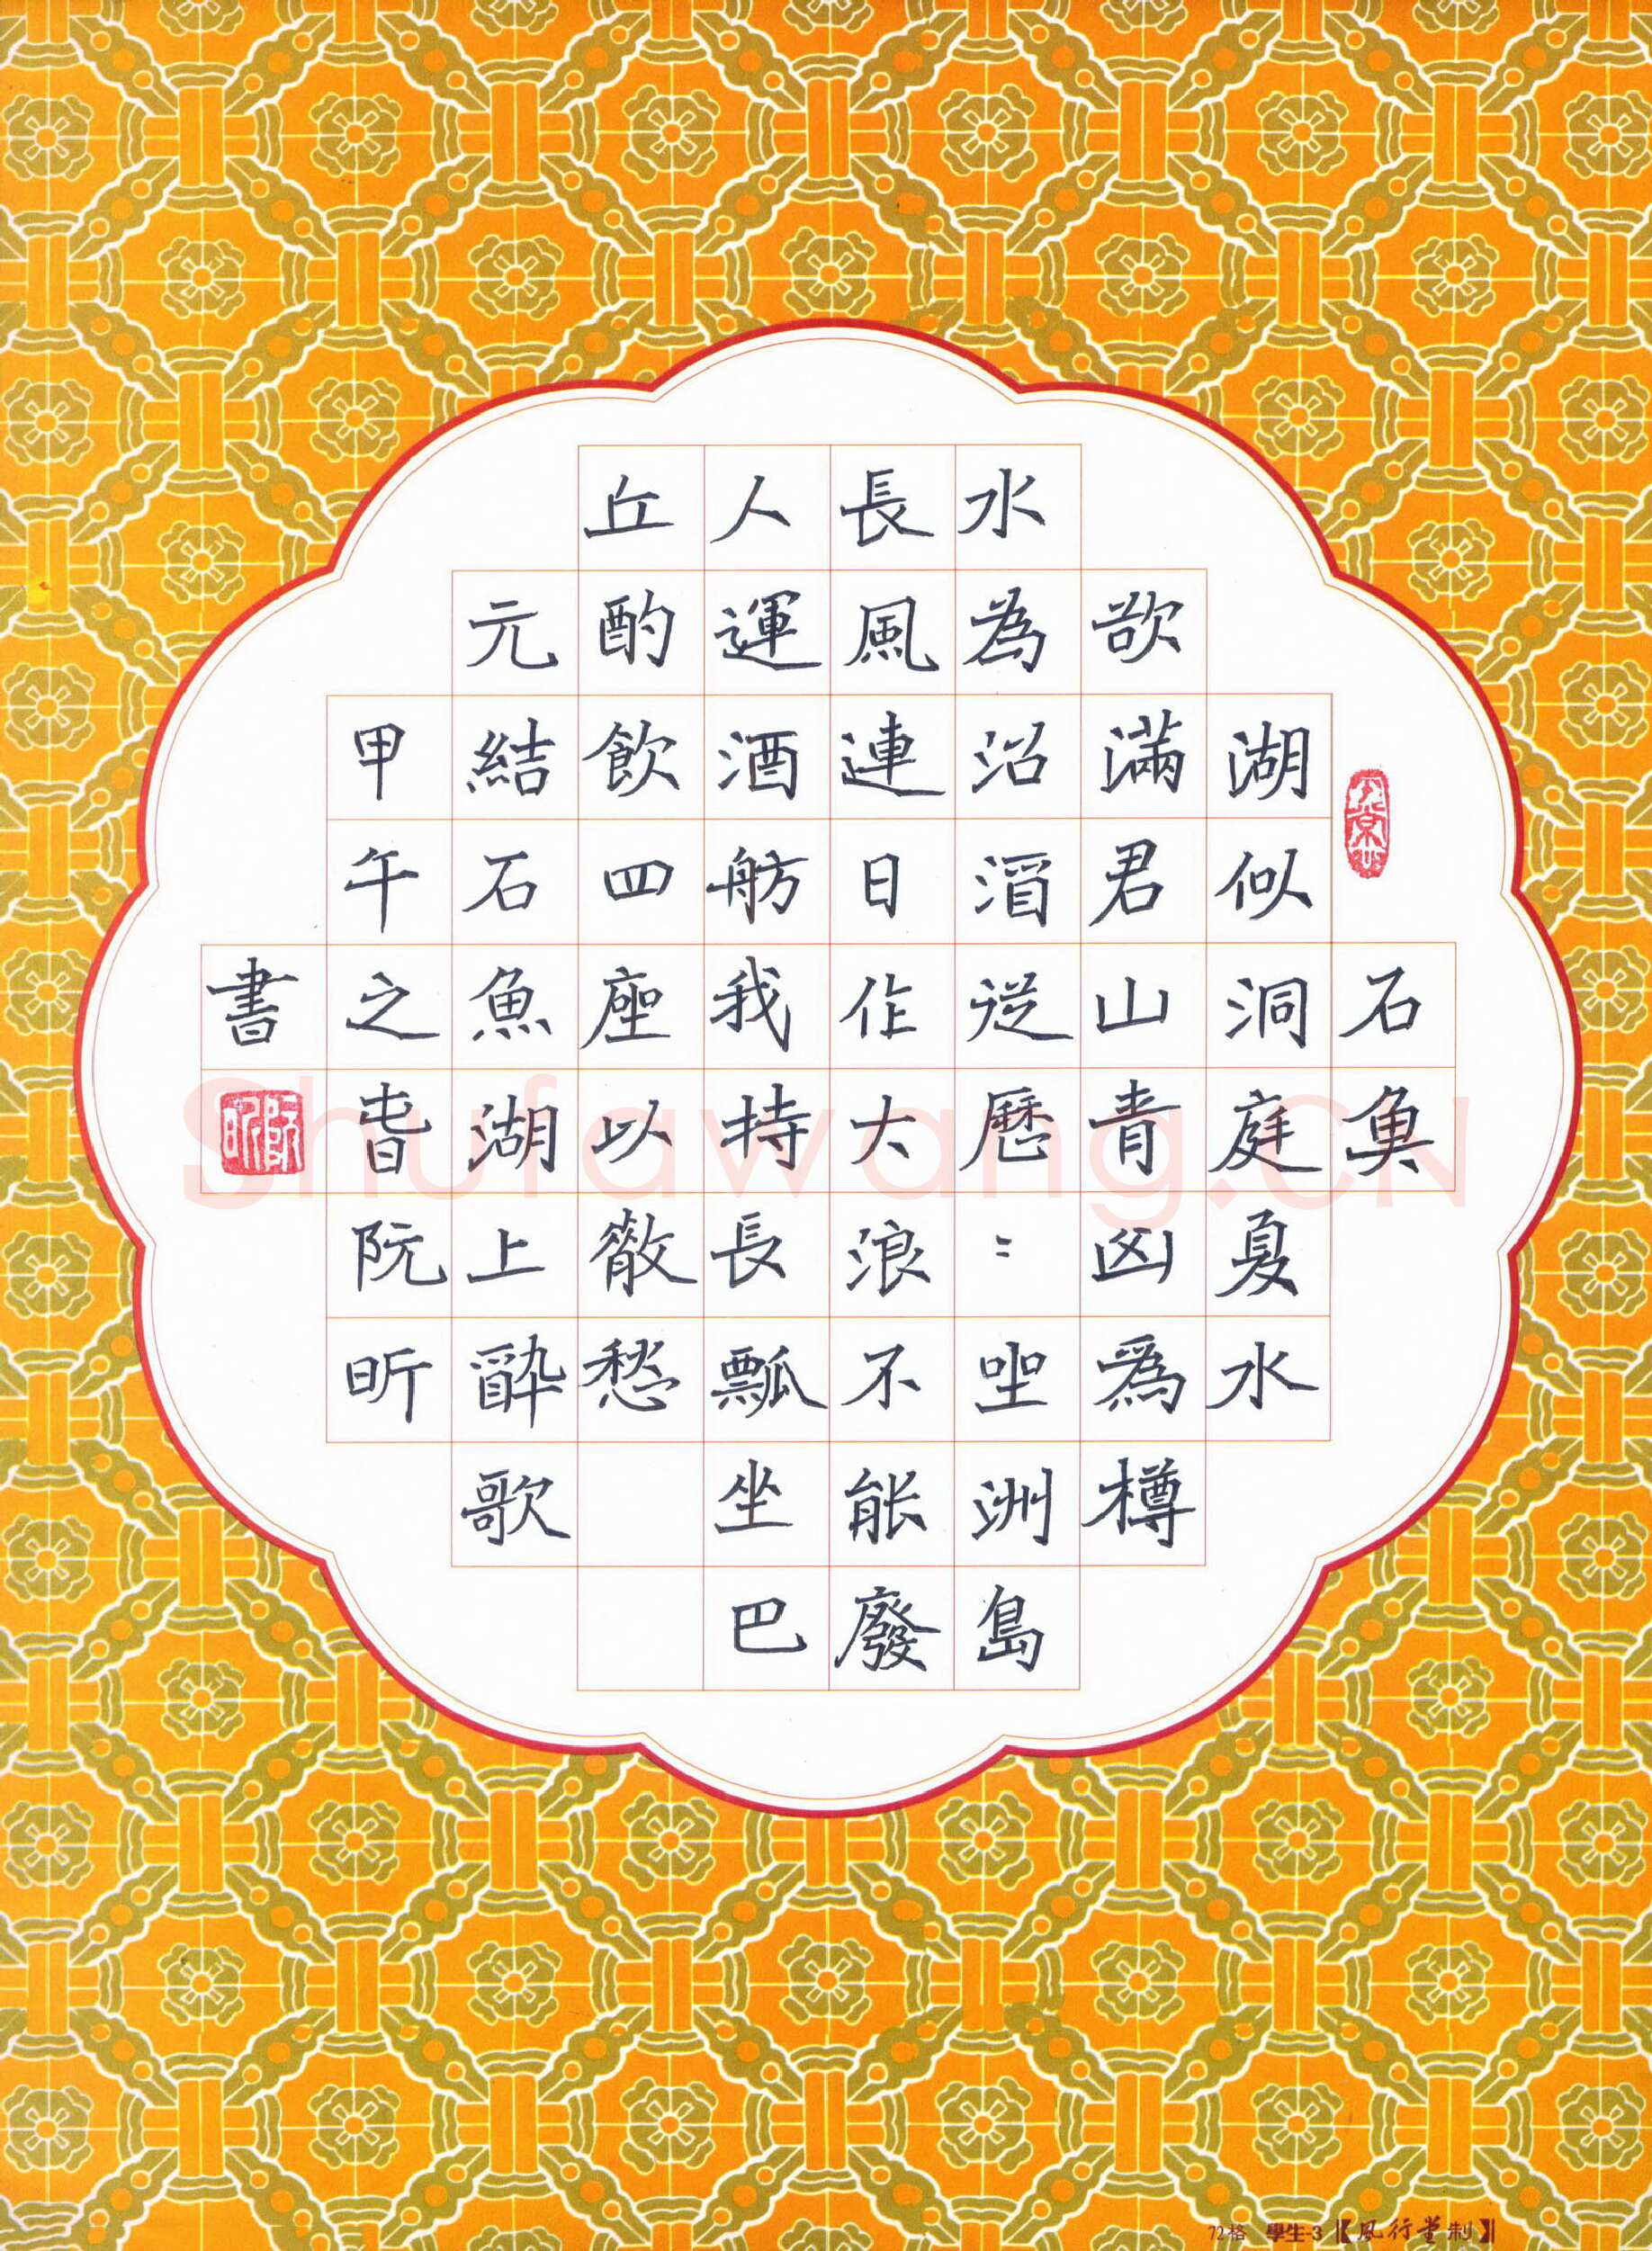 石魚
湖似洞庭夏水
欲滿君山青山爲樽
水為沼酒徒歷〻坐洲島
長風連日作大浪不能廢
人運酒舫我持長瓢坐巴
丘酌飲四座以散愁
元結石魚湖上醉歌
甲午之春阮昕
書
阮昕
Shufawang.CN
72格 學生-3【風行堂制】